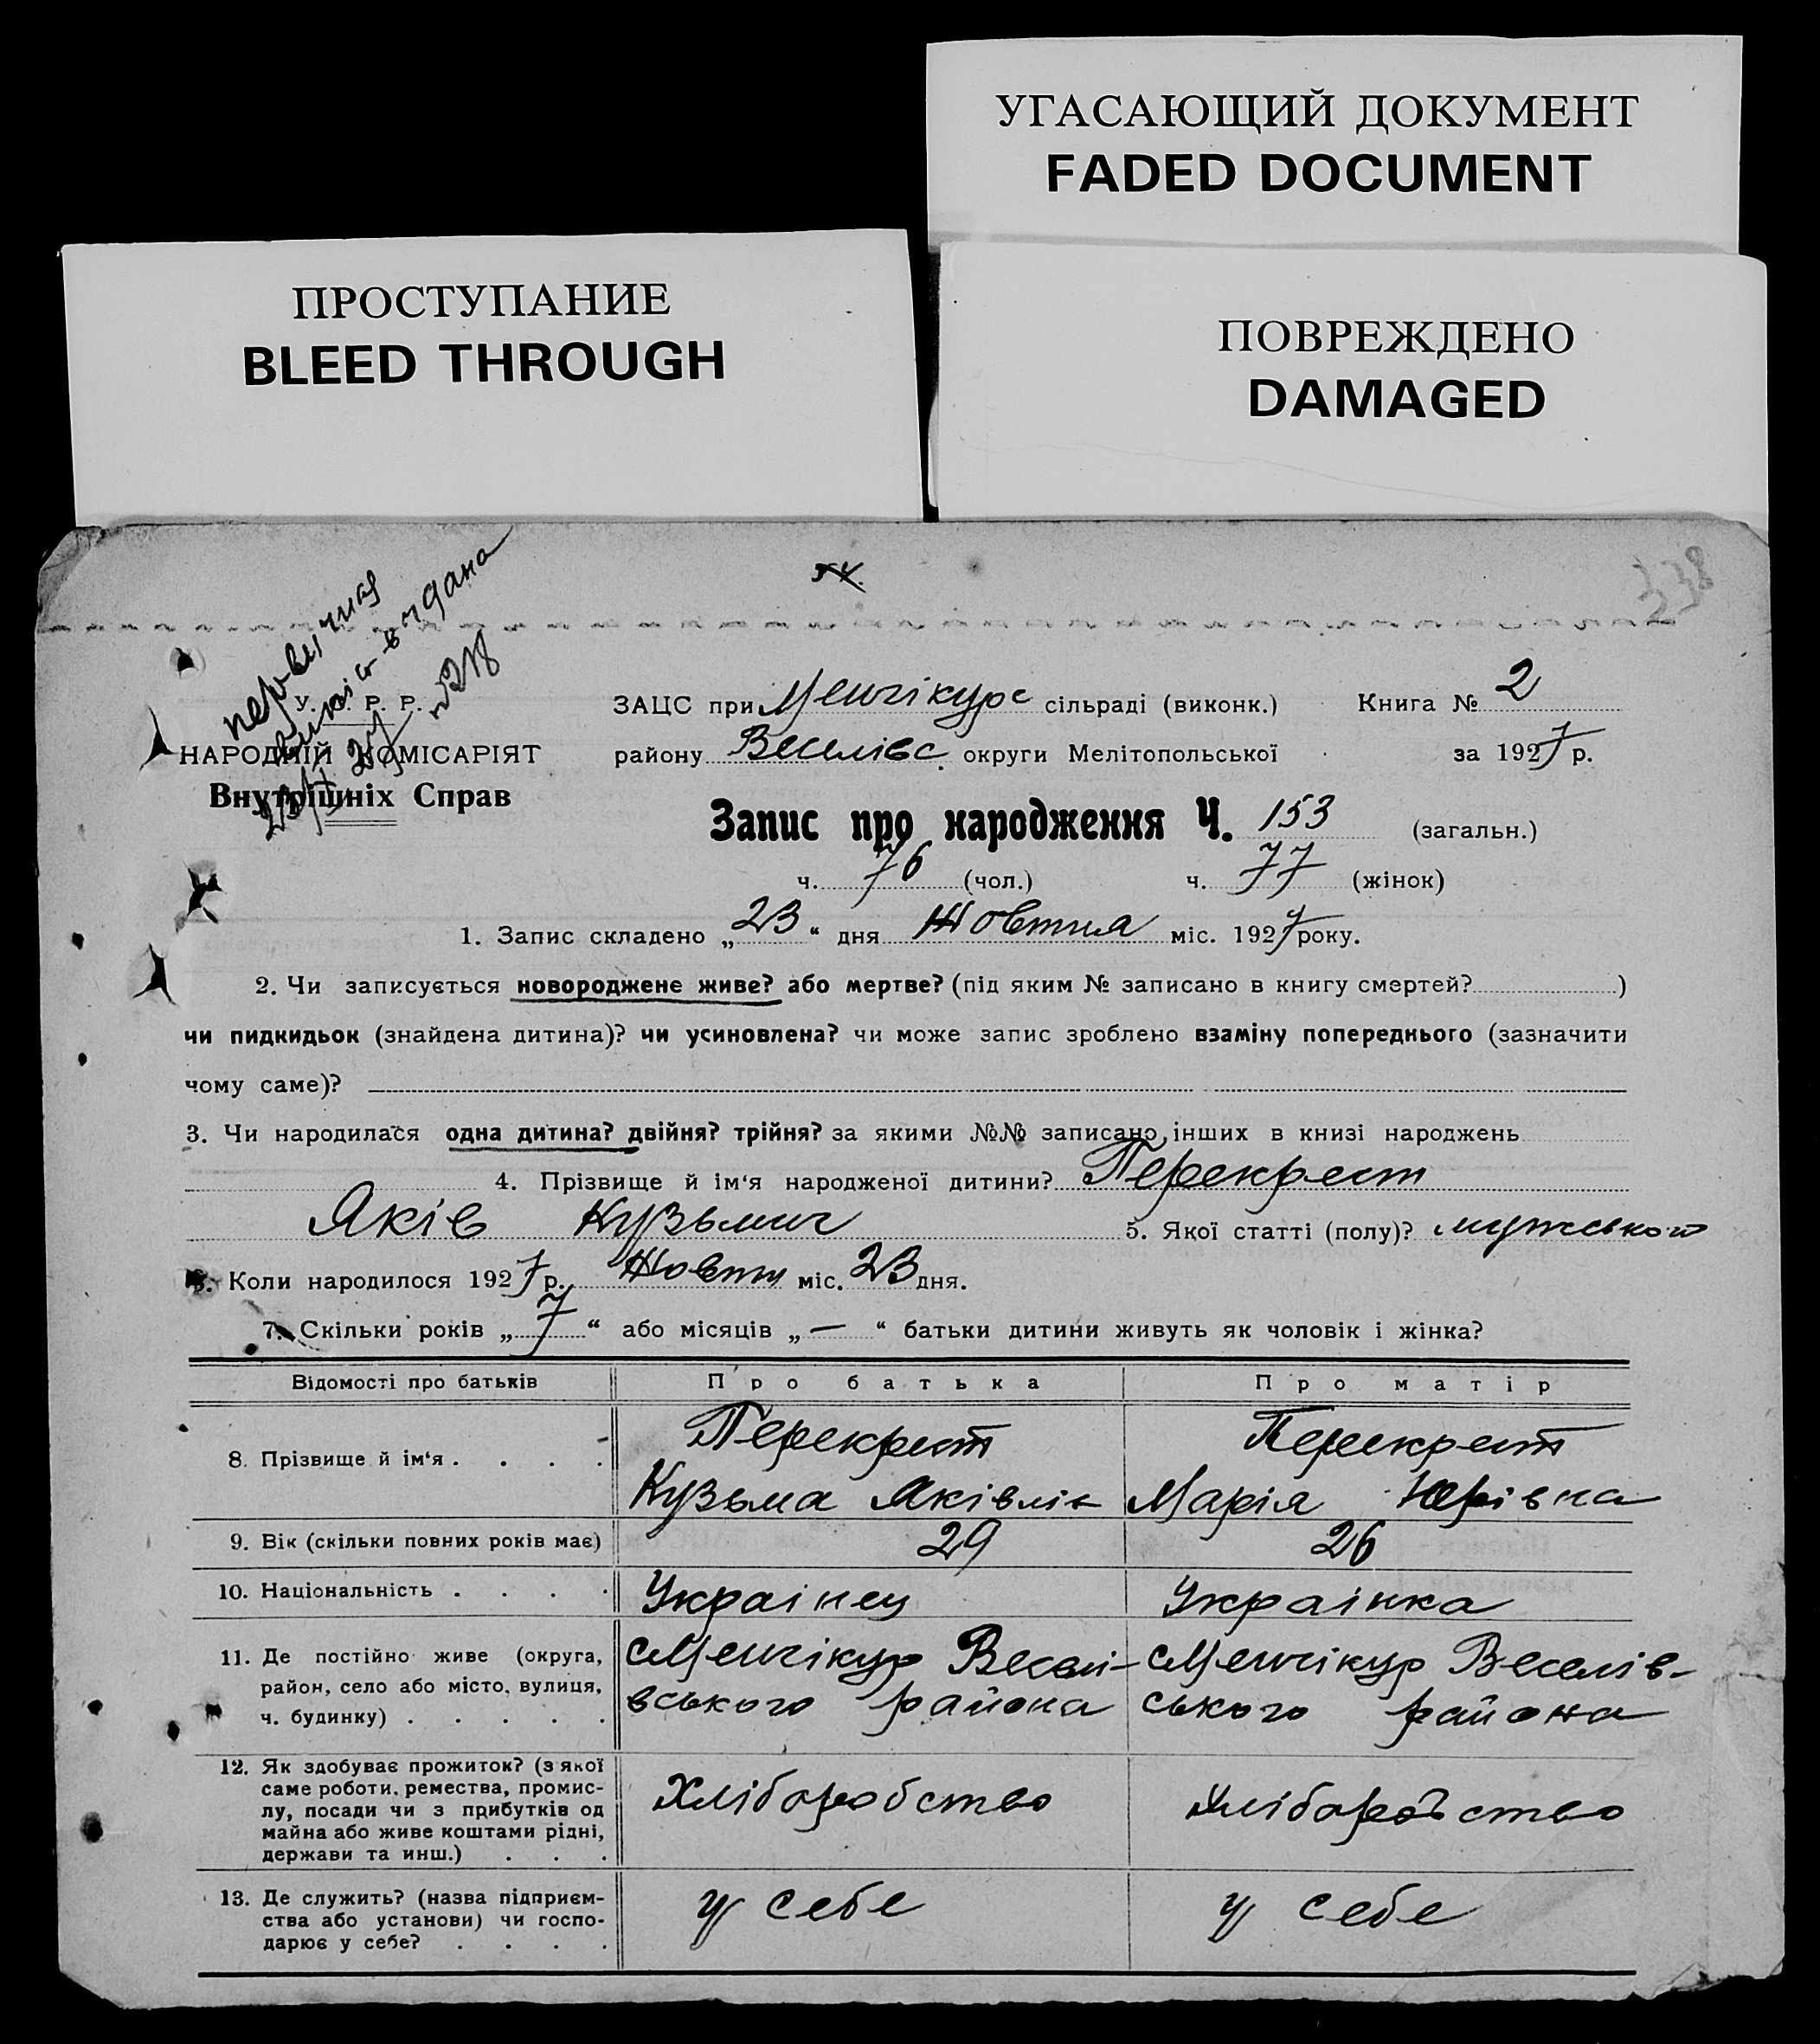 УГАСАЮЩИЙ ДОКУМЕНТ
FADED DOCUMENT
ПРОСТУПАНИЕ
BLEED THROUGH
ПОВРЕЖДЕНО
DAMAGED
54.
338
видана
№ 218
У. С. Р. Р.
НАРОДНІЙ КОМІСАРІЯТ
Внутрішніх Справ
ЗАЦС при Менчікурс сільраді (виконк.) Книга № 2
району Веселівс. округи Мелітопольської за 1927 р.
Запис про народження Ч. 153 (загальн.)
ч. 76 (чол.) ч. 77 (жінок)
1. Запис складено „23“ дня Жовтня міс. 1927 року.
2. Чи записується новороджене живе? або мертве? (під яким № записано в книгу смертей? )
чи пидкидьок (знайдена дитина)? чи усиновлена? чи може запис зроблено взаміну попереднього (зазначити
чому саме)?
3. Чи народилася одна дитина? двійня? трійня? за якими №№ записано інших в книзі народжень
4. Прізвище й ім‘я народженої дитини? Перекрест
Яків Кузьмич 5. Якої статті (полу)? мужського
6. Коли народилося 1927 р. Жовтн міс. 23 дня.
7. Скільки років „7“ або місяців „—“ батьки дитини живуть як чоловік і жінка?
Відомості про батьків Про батька Про матір
8. Прізвище й ім‘я . . . . Перекрест Перекрест
Кузьма Яківліч Марія Юрівна
9. Вік (скільки повних років має) 29 26
10. Національність . . . . Украінец Украінка
11. Де постійно живе (округа, Менчікур Веселі- Менчікур Веселів-
район, село або місто, вулиця, вського района ського района
ч. будинку) . . . . .
12. Як здобуває прожиток? (з якої
саме роботи, ремества, промис-
лу, посади чи з прибутків од Хліборобство Хліборобство
майна або живе коштами рідні,
держави та инш.) . . .
13. Де служить? (назва підприєм- у себе у себе
ства або установи) чи госпо-
дарює у себе? . . . .